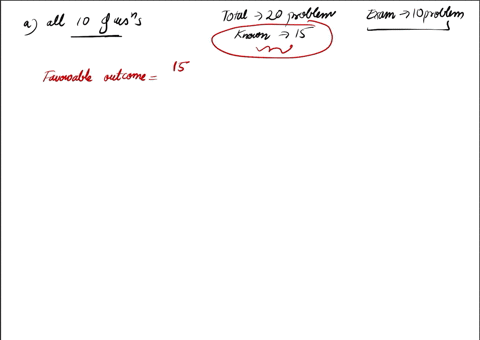 a) all 10 quesⁿs
Total → 20 problem
Known → 15
Exam → 10 problem
Favourable outcome = 15